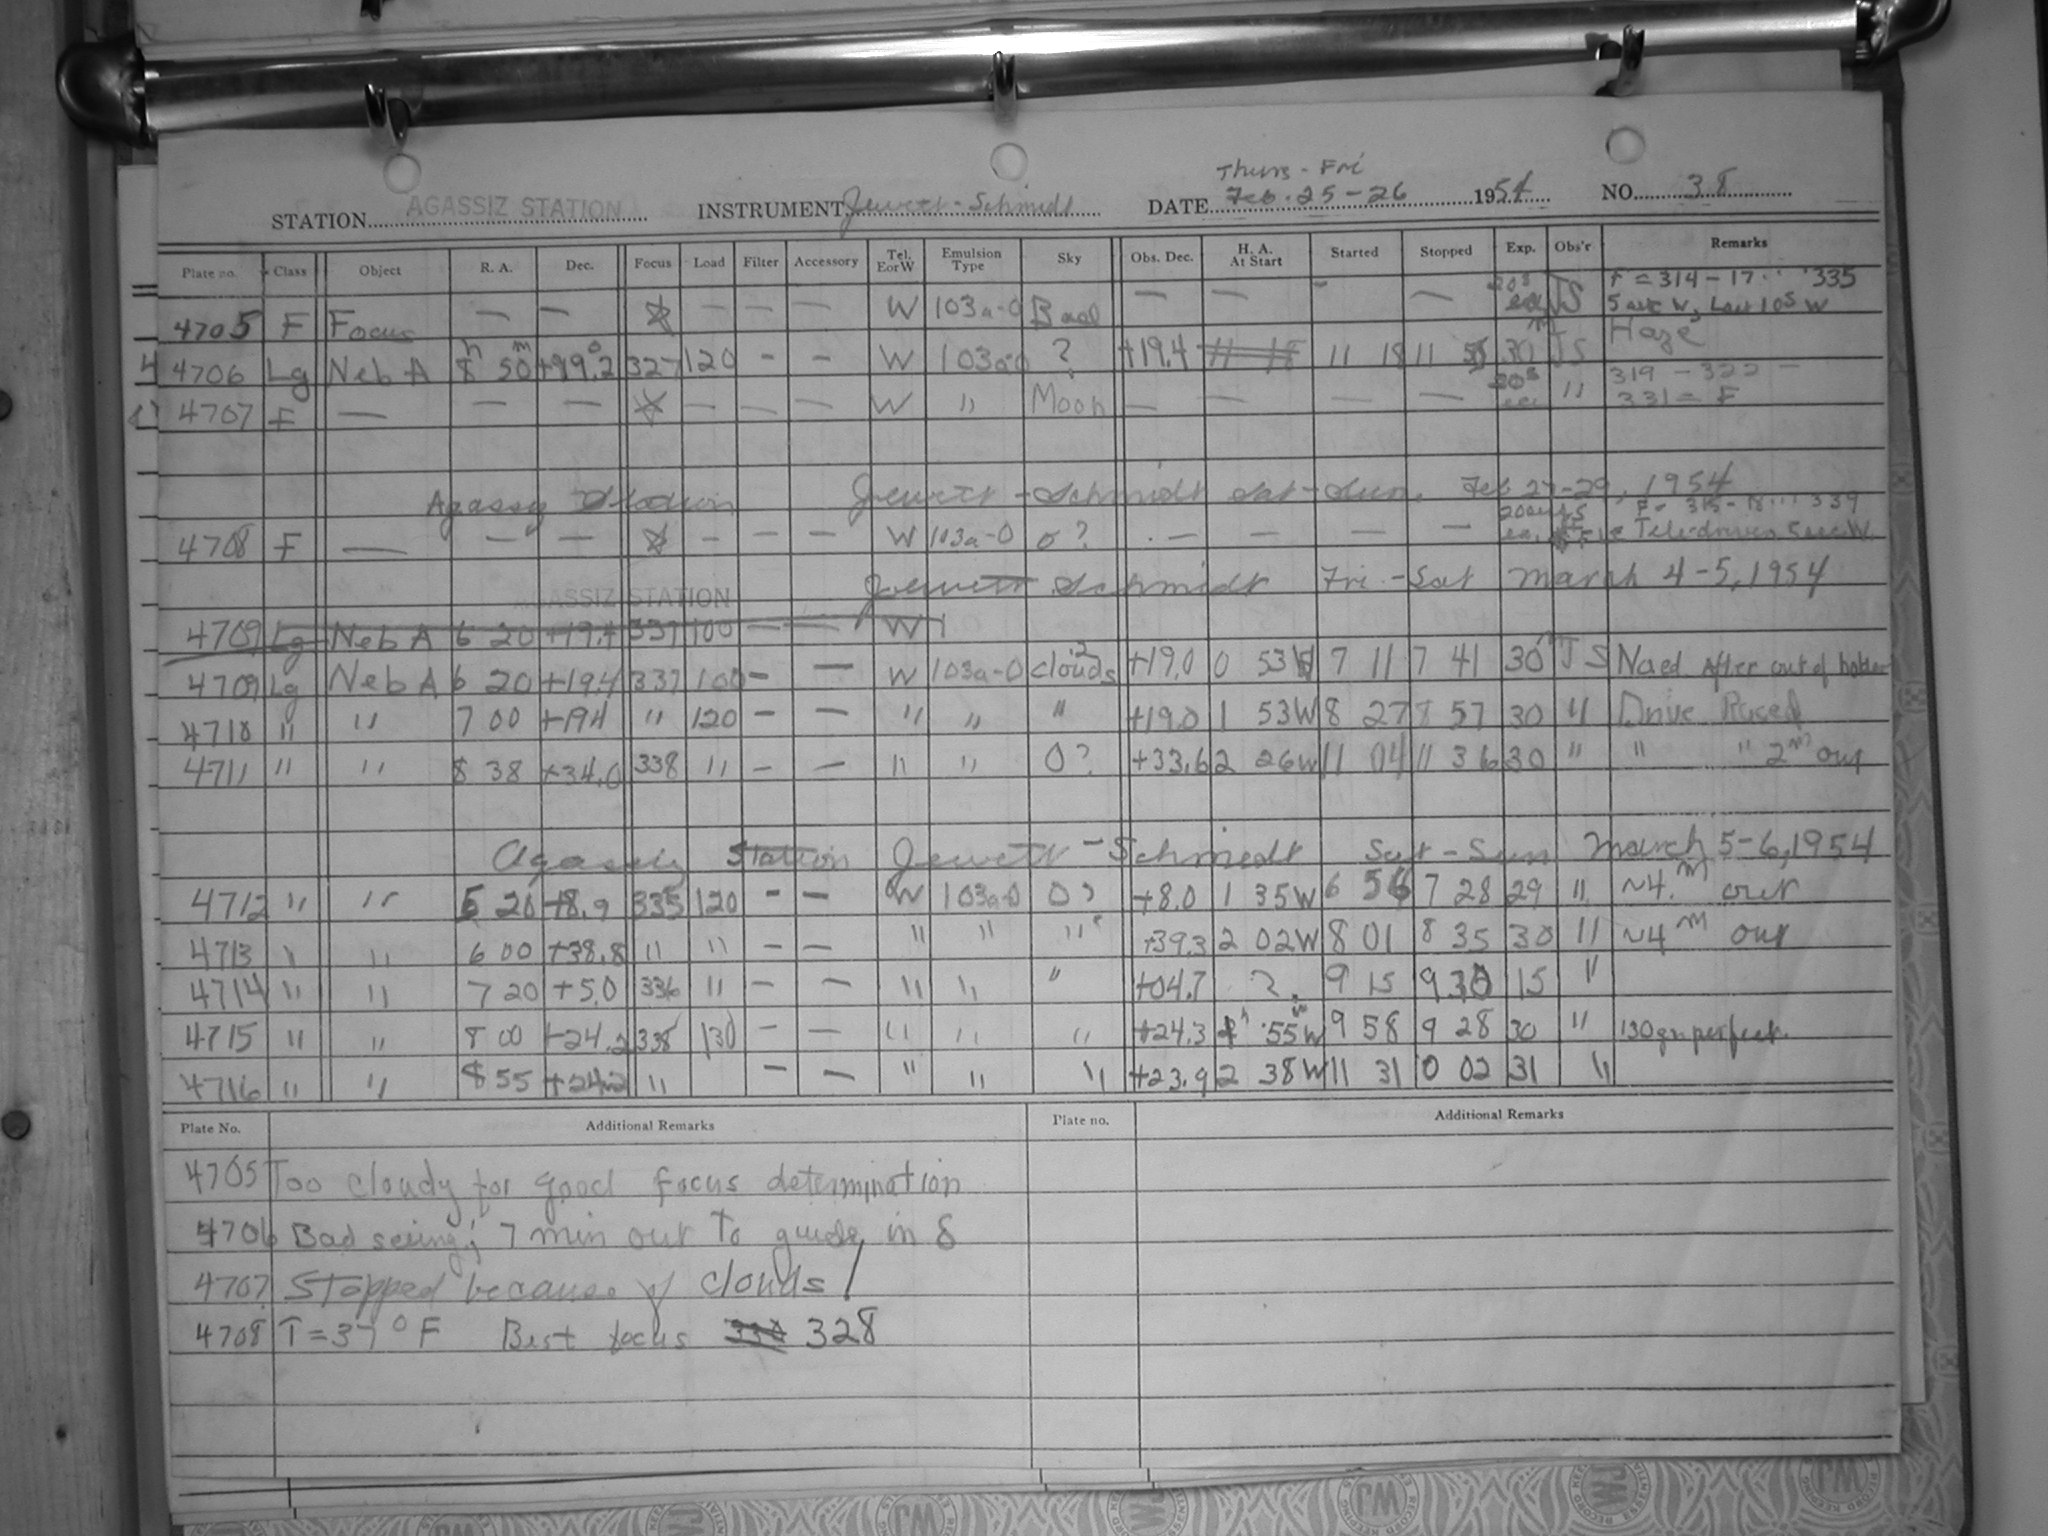 Thurs - Fri
STATION AGASSIZ STATION INSTRUMENT Jewett-Schmidt DATE Feb. 25-26 1954 NO. 38
Plate no. Class Object R. A. Dec. Focus Load Filter Accessory Tel. E or W Emulsion Type Sky Obs. Dec. H. A. At Start Started Stopped Exp. Obs'r Remarks
4705 F Focus — — ☆ — — — W 103a-O Bad — — - — 20s ea JS F = 314-17 ... 335 5 sec W, Last 10s W
4706 Lg Neb A 8h 50m 327 120 - - W 103a-O ? +19.4 11 18 11 18 11 55 30m JS Haze
4707 F — — — ☆ — — — W " Moon — — — — 20s ea " 319 - 322 - 331 = F
Agassiz Station Jewett-Schmidt Sat-Sun. Feb 27-29, 1954
4708 F — — — ☆ — — — W 103a-O o? — — — — F = 315-18 ... 339 5 sec W.
AGASSIZ STATION Jewett Schmidt Fri - Sat March 4-5, 1954
4709 Lg Neb A 6 20 +19.4 337 100 — — W
4709 Lg Neb A 6 20 +19.4 337 100 - — W 103a-O clouds? +19.0 0 53 7 11 7 41 30m JS After out of holder
4710 " " 7 00 +19.4 " 120 - — " " " +19.0 1 53W 8 27 8 57 30 " Drive
4711 " " 8 38 +34.0 338 " - — " " O? +33.6 2 26W 11 04 11 36 30 " " " 2m out
Agassiz Station Jewett-Schmidt Sat - Sun March 5-6, 1954
4712 " " 5 20 +8.9 335 120 - - W 103a-O O? +8.0 1 35W 6 56 7 28 29 " ~4m out
4713 " " 6 00 +38.8 " " - — " " " +39.3 2 02W 8 01 8 35 30 " ~4m out
4714 " " 7 20 +5.0 336 " - — " " " +04.7 ? 9 15 9 30 15 "
4715 " " 8 00 +24.2 338 130 - — " " " +24.3 55mW 9 58 9 28 30 " 130 gm perfect.
4716 " " 8 55 +24.2 " - — " " " +23.9 2 38W 11 31 0 02 31 "
Plate No. Additional Remarks Plate no. Additional Remarks
4705 Too cloudy for good focus determination
4706 Bad seeing; 7 min out to guide in δ
4707 Stopped because of clouds!
4708 T = 37° F Best focus 328